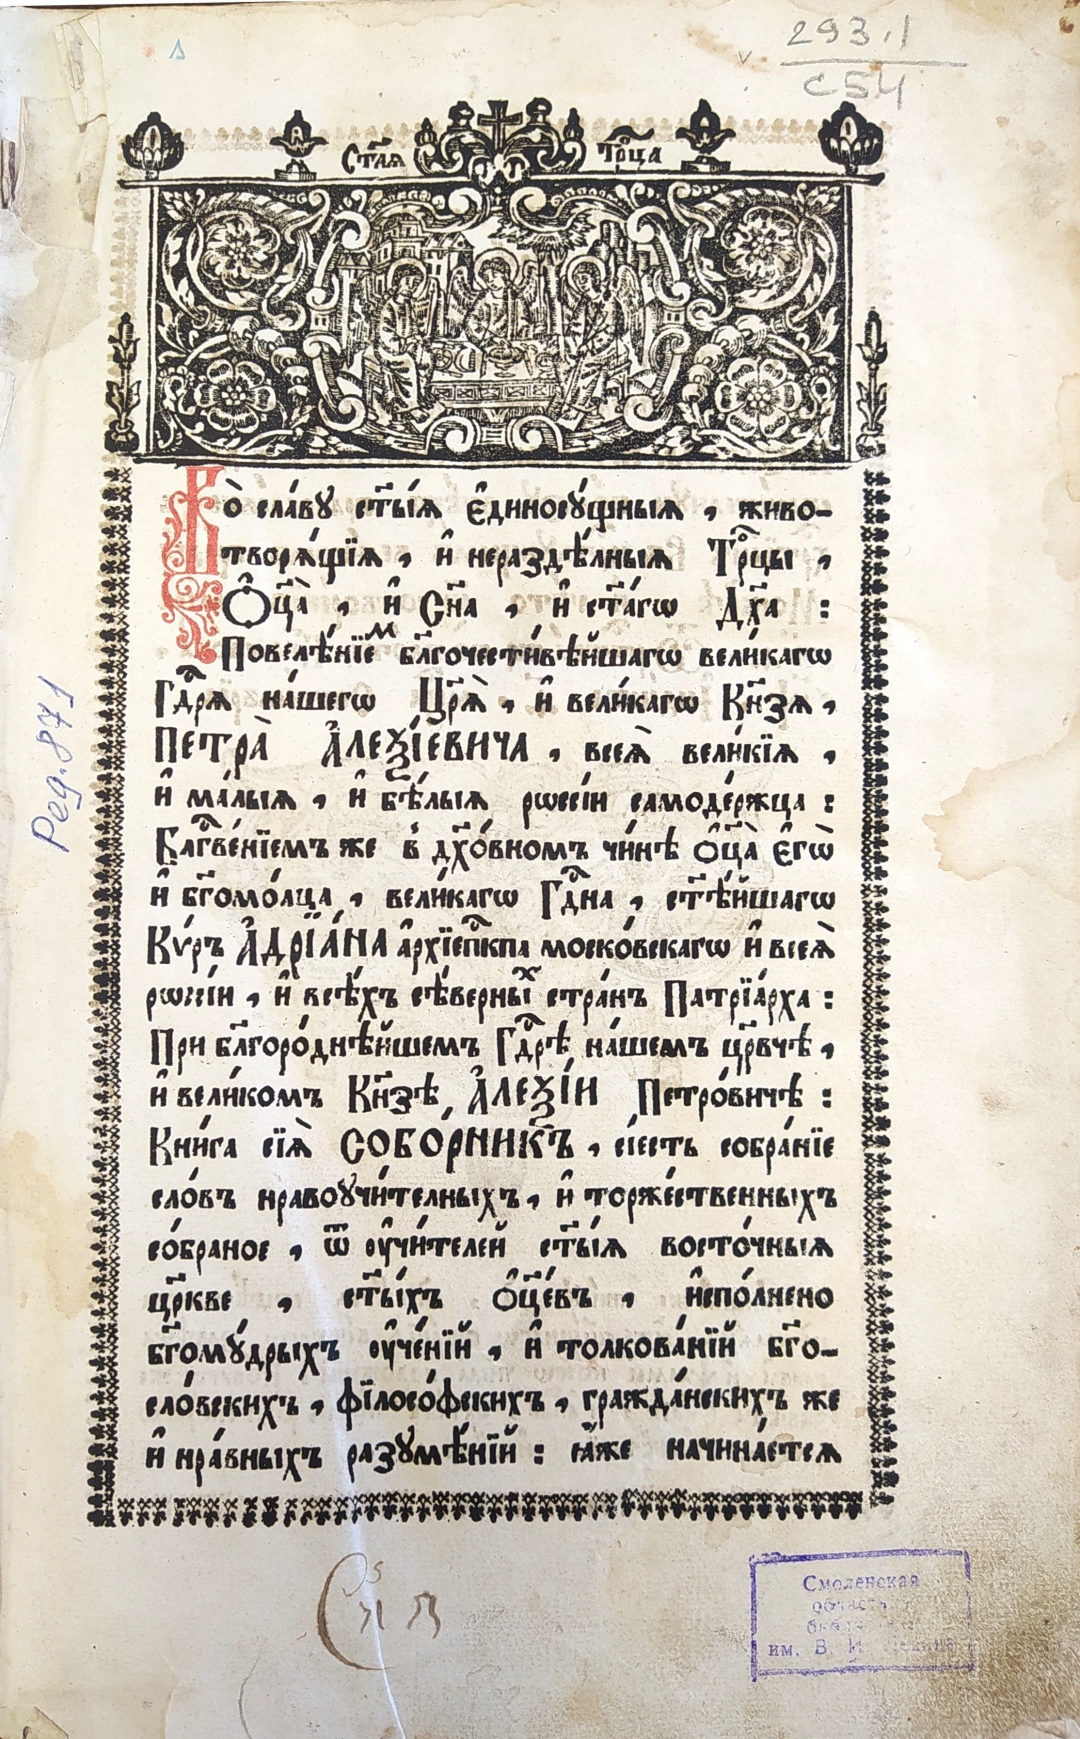 293.1
С54
Ст҃ая Трⷪ҇ца
Во̀ сла́ву ст҃ы́ѧ є҆диносꙋ́щныѧ , живо-
творѧ́щїѧ , и҆ нераздѣ́лныѧ Трⷪ҇цы ,
Ѻ҆ц҃а̀ , и҆ Сн҃а , и҆ ст҃а́гѡ Дх҃а :
Повелѣ́нїеⷨ бл҃гочести́вѣйшагѡ вели́кагѡ
Гдⷭ҇рѧ на́шегѡ Цр҃ѧ̀ , и҆ вели́кагѡ Кн҃зѧ ,
ПЕТРА̀ А҆ЛЕѮІ́ЕВИЧА , всеѧ̀ вели́кїѧ ,
и҆ ма́лыѧ , и҆ бѣ́лыѧ рѡссі́и самоде́ржца :
Блⷭ҇гве́нїемъ же в̾ дх҃о́вномъ чи́нѣ ѻ҆ц҃а̀ є҆гѡ̀
и҆ бг҃омо́лца , вели́кагѡ Гдⷭ҇на , ст҃ѣ́йшагѡ
Кѵ́ръ А҆ДРЇА́НА а҆рхїепⷭ҇кпа моско́вскагѡ и҆ всеѧ̀
рѡссі́и , и҆ всѣ́хъ сѣ́верныⷯ стра́нъ Патрїа́рха :
При бл҃горо́днѣйшемъ Гдⷭ҇рѣ на́шемъ цр҃вчѣ ,
и҆ вели́комъ Кн҃зѣ А҆ЛЕѮІ́И Петро́вичѣ :
Кни́га сїѧ̀ СОБО́РНИКЪ , сі́есть собра́нїе
сло́въ нравоꙋчи́телныхъ , и҆ торже́ственныхъ
со́браное , ѿ ᲂу҆чи́телей ст҃ы́ѧ восто́чныѧ
цр҃кве , ст҃ы́хъ ѻ҆ц҃е́въ , и҆спо́лнено
бг҃омꙋ́дрыхъ ᲂу҆че́нїй , и҆ толкова́нїй бг҃о-
сло́вскихъ , фїлосо́фскихъ , гражда́нскихъ же
и҆ нра́вныхъ разꙋмѣ́нїй : ꙗ҆́же начина́етсѧ
Ред. 871
Смоленская
им. В. И.